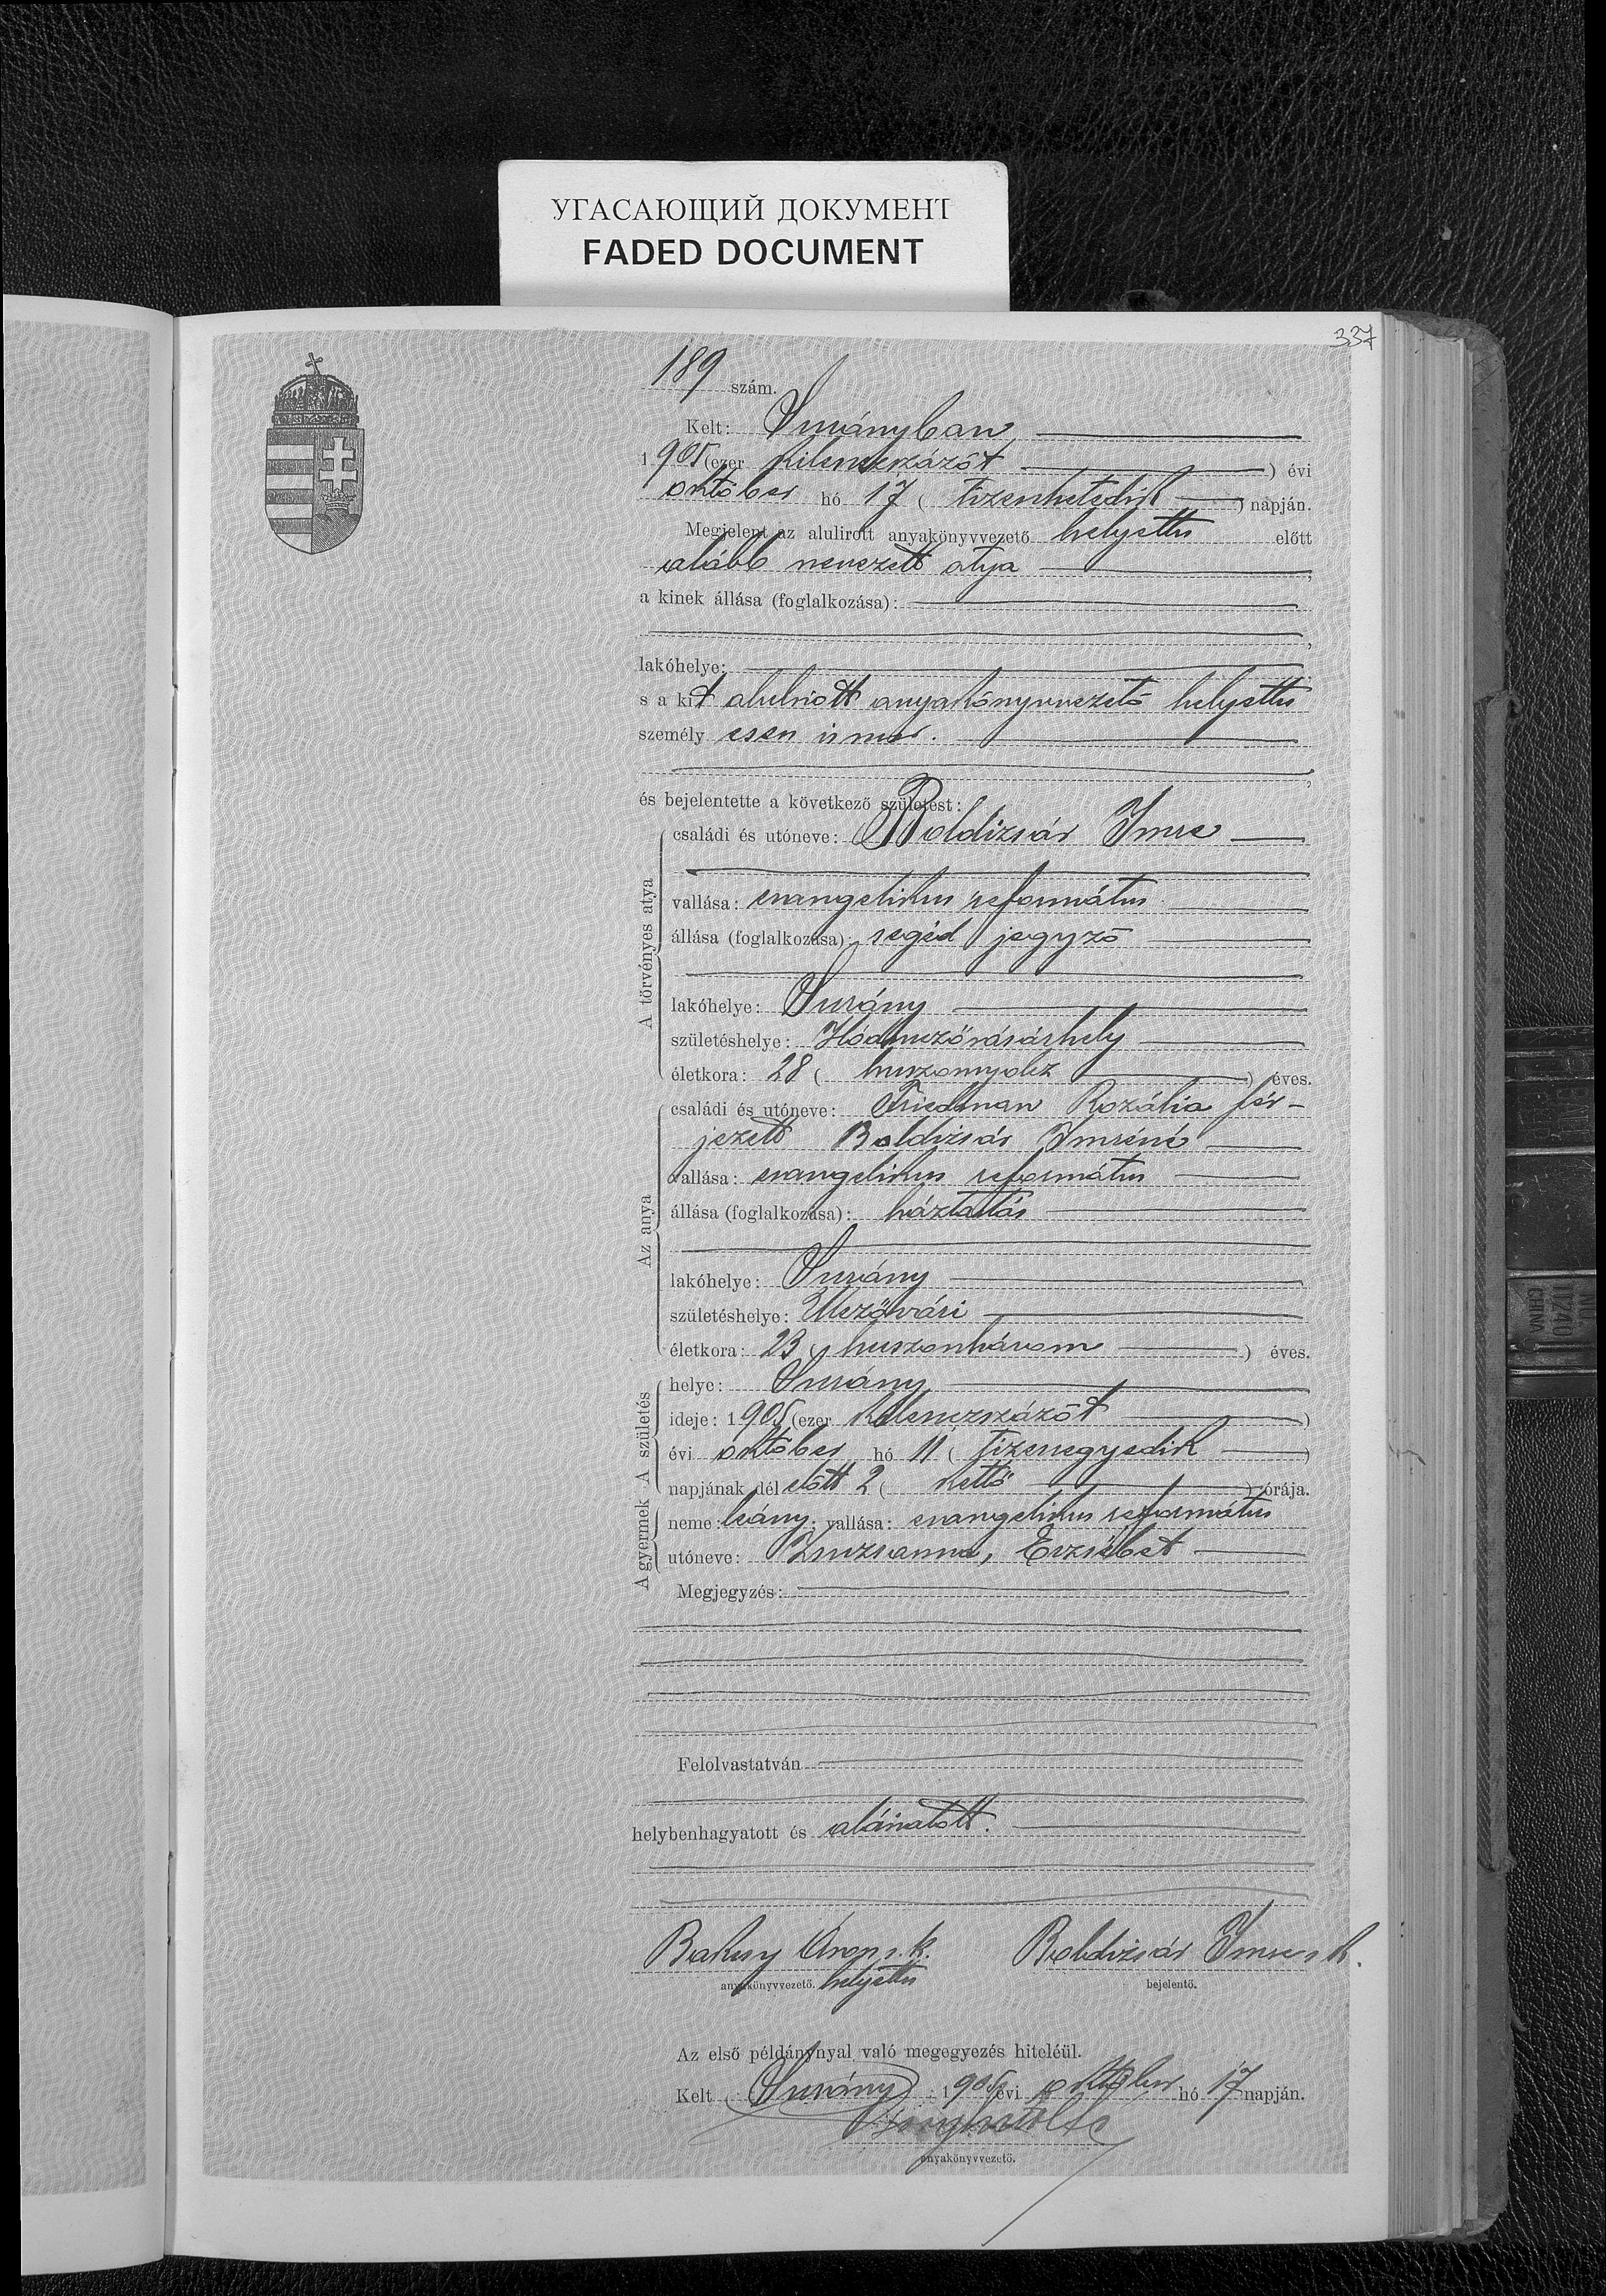 УГАСАЮЩИЙ ДОКУМЕНТ
FADED DOCUMENT
337
189 szám.
Kelt: Surányban
1905 (ezer kilenczszázöt) évi
október hó 17 (tizenhetedik) napján.
Megjelent az alulirott anyakönyvvezető helyettes előtt
alább nevezett atya,
a kinek állása (foglalkozása):
lakóhelye:
s a kit alulirott anyakönyvvezető helyettes
személyesen ismer.
és bejelentette a következő születést:
A törvényes atya
családi és utóneve: Boldizsár Imre
vallása: evangelikus református
állása (foglalkozása): segéd jegyző
lakóhelye: Surány
születéshelye: Hódmezővásárhely
életkora: 28 (huszonnyolcz) éves.
Az anya
családi és utóneve: Friedman Rozália fér-
jezett Boldizsár Imréné
vallása: evangelikus református
állása (foglalkozása): háztartás
lakóhelye: Surány
születéshelye: Mezővári
életkora: 23 (huszonhárom) éves.
A születés
helye: Surány
ideje: 1905 (ezer kilenczszázöt)
évi október hó 11 (tizenegyedik)
napjának dél előtt 2 (kettő) órája.
A gyermek
neme: leány. vallása: evangelikus református
utóneve: Zsuzsanna, Erzsébet
Megjegyzés:
Felolvastatván
helybenhagyatott és aláiratott.
Baksy Áron s. k. Boldizsár Imre s. k.
anyakönyvvezető. helyettes bejelentő.
Az első példánynyal való megegyezés hiteléül.
Kelt Surány 1905 évi október hó 17 napján.
anyakönyvvezető.